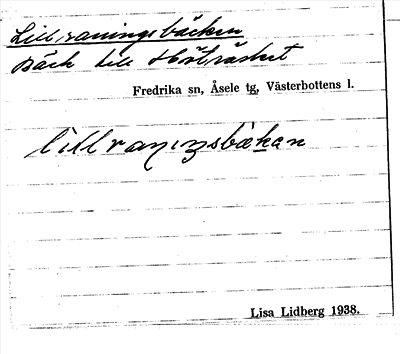 Lill,raningsbäcken
Bäck till Hörträsket
Fredrika sn, Åsele tg, Västerbottens l.
lillraningsbäkan
Lisa Lidberg 1938.